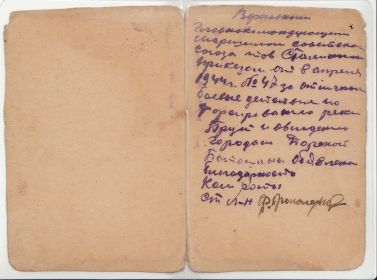 Верховный
Главнокомандующий
Маршалом Советского
Союза тов Сталина
приказом от 8 апреля
1944г. № 47 за отличные
боевые действия по
форсированию реки
Прут и овладению
городами Дорохой
Батошаны объявлена
благодарность
Ком роты
Ст Л-н